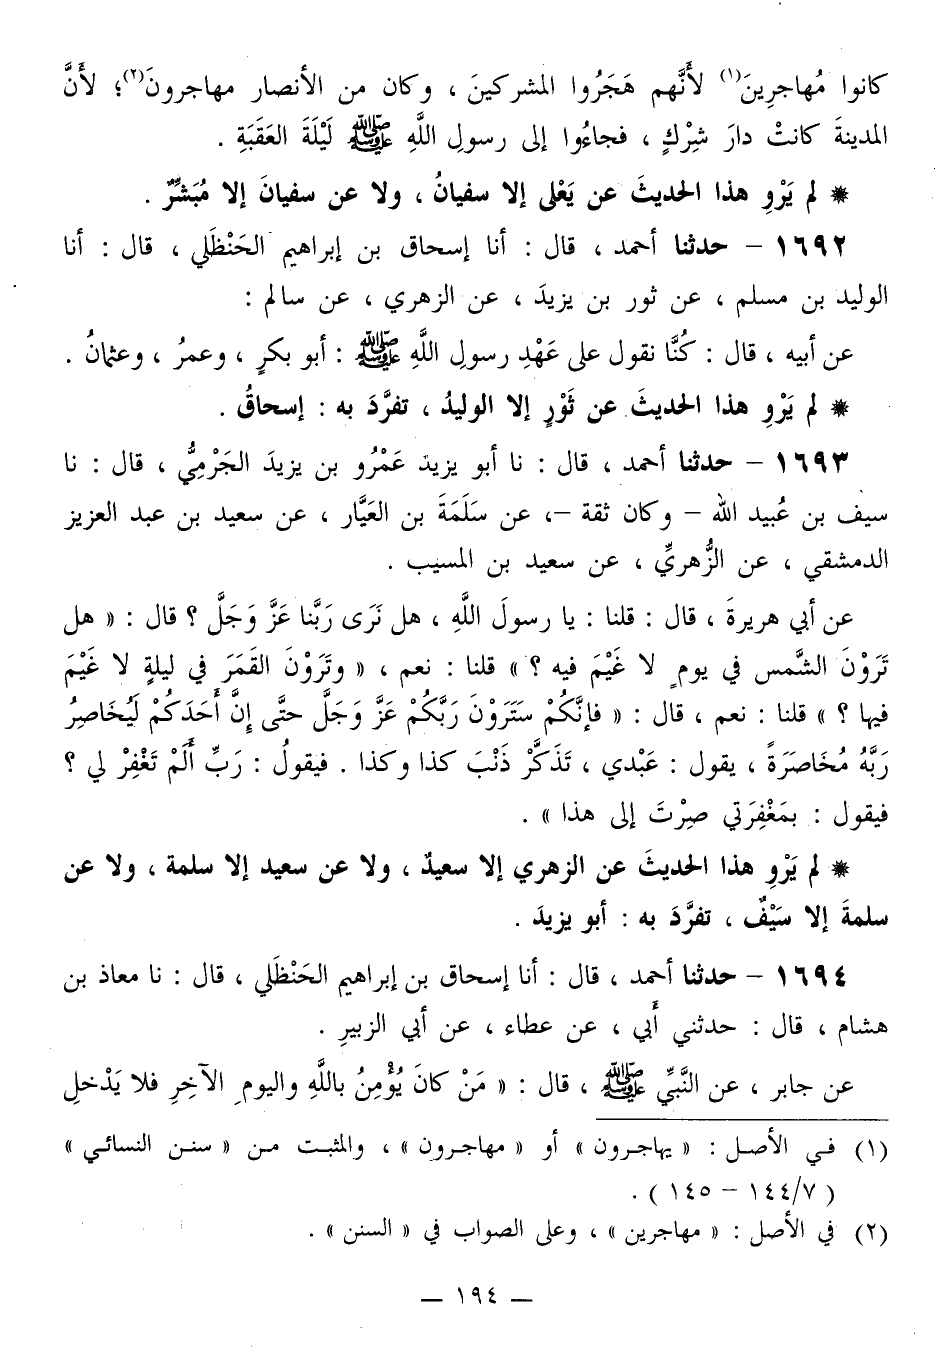 كانوا مُهاجرِينَ(١) لأَنَّهم هَجَرُوا المشركينَ ، وكان من الأنصار مهاجرونَ(٢)؛ لأَنَّ
المدينةَ كانتْ دارَ شِرْكٍ ، فجاءُوا إلى رسولِ اللَّهِ ﷺ لَيْلَةَ العَقَبَةِ .
* لم يَرْوِ هذا الحديثَ عن يَعْلى إلا سفيانُ ، ولا عن سفيانَ إلا مُبَشِّرٌ .
١٦٩٢ - حدثنا أحمد ، قال : أنا إسحاق بن إبراهيم الحَنْظَلي ، قال : أنا
الوليد بن مسلم ، عن ثور بن يزيدَ ، عن الزهري ، عن سالم :
عن أبيه ، قال : كُنَّا نقول على عَهْدِ رسولِ اللَّهِ ﷺ : أبو بكرٍ ، وعمرُ ، وعثمانُ .
* لم يَرْوِ هذا الحديثَ عن ثَوْرٍ إلا الوليدُ ، تفرَّدَ به : إسحاقُ .
١٦٩٣ - حدثنا أحمد ، قال : نا أبو يزيد عَمْرُو بن يزيدَ الجَرْمِيُّ ، قال : نا
سيف بن عُبيد الله - وكان ثقة -، عن سَلَمَةَ بن العَيَّار ، عن سعيد بن عبد العزيز
الدمشقي ، عن الزُّهريِّ ، عن سعيد بن المسيب .
عن أبي هريرةَ ، قال : قلنا : يا رسولَ اللَّهِ ، هل نَرَى رَبَّنا عَزَّ وَجَلَّ ؟ قال : « هل
تَرَوْنَ الشَّمس في يومٍ لا غَيْمَ فيه ؟ » قلنا : نعم ، « وتَرَوْنَ القَمَرَ في ليلةٍ لا غَيْمَ
فيها ؟ » قلنا : نعم ، قال : « فإنَّكُمْ سَتَرَوْنَ رَبَّكُمْ عَزَّ وَجَلَّ حتَّى إنَّ أَحَدَكُمْ لَيُخَاصِرُ
رَبَّهُ مُخَاصَرَةً ، يقول : عَبْدي ، تَذَكَّرْ ذَنْبَ كذا وكذا . فيقولُ : رَبِّ أَلَمْ تَغْفِرْ لي ؟
فيقول : بمَغْفِرَتي صِرْتَ إلى هذا » .
* لم يَرْوِ هذا الحديثَ عن الزهري إلا سعيدٌ ، ولا عن سعيد إلا سلمة ، ولا عن
سلمةَ إلا سَيْفٌ ، تفرَّدَ به : أبو يزيدَ .
١٦٩٤ - حدثنا أحمد ، قال : أنا إسحاق بن إبراهيم الحَنْظَلي ، قال : نا معاذ بن
هشام ، قال : حدثني أَبي ، عن عطاء ، عن أبي الزبيرِ .
عن جابر ، عن النَّبيِّ ﷺ ، قال : « مَنْ كانَ يُؤْمِنُ باللَّهِ واليومِ الآخِرِ فلا يَدْخلِ
(١) في الأصل : « يهاجرون » أو « مهاجرون » ، والمثبت من « سنن النسائي »
( ١٤٤/٧ - ١٤٥ ) .
(٢) في الأصل : « مهاجرين » ، وعلى الصواب في « السنن » .
— ١٩٤ —